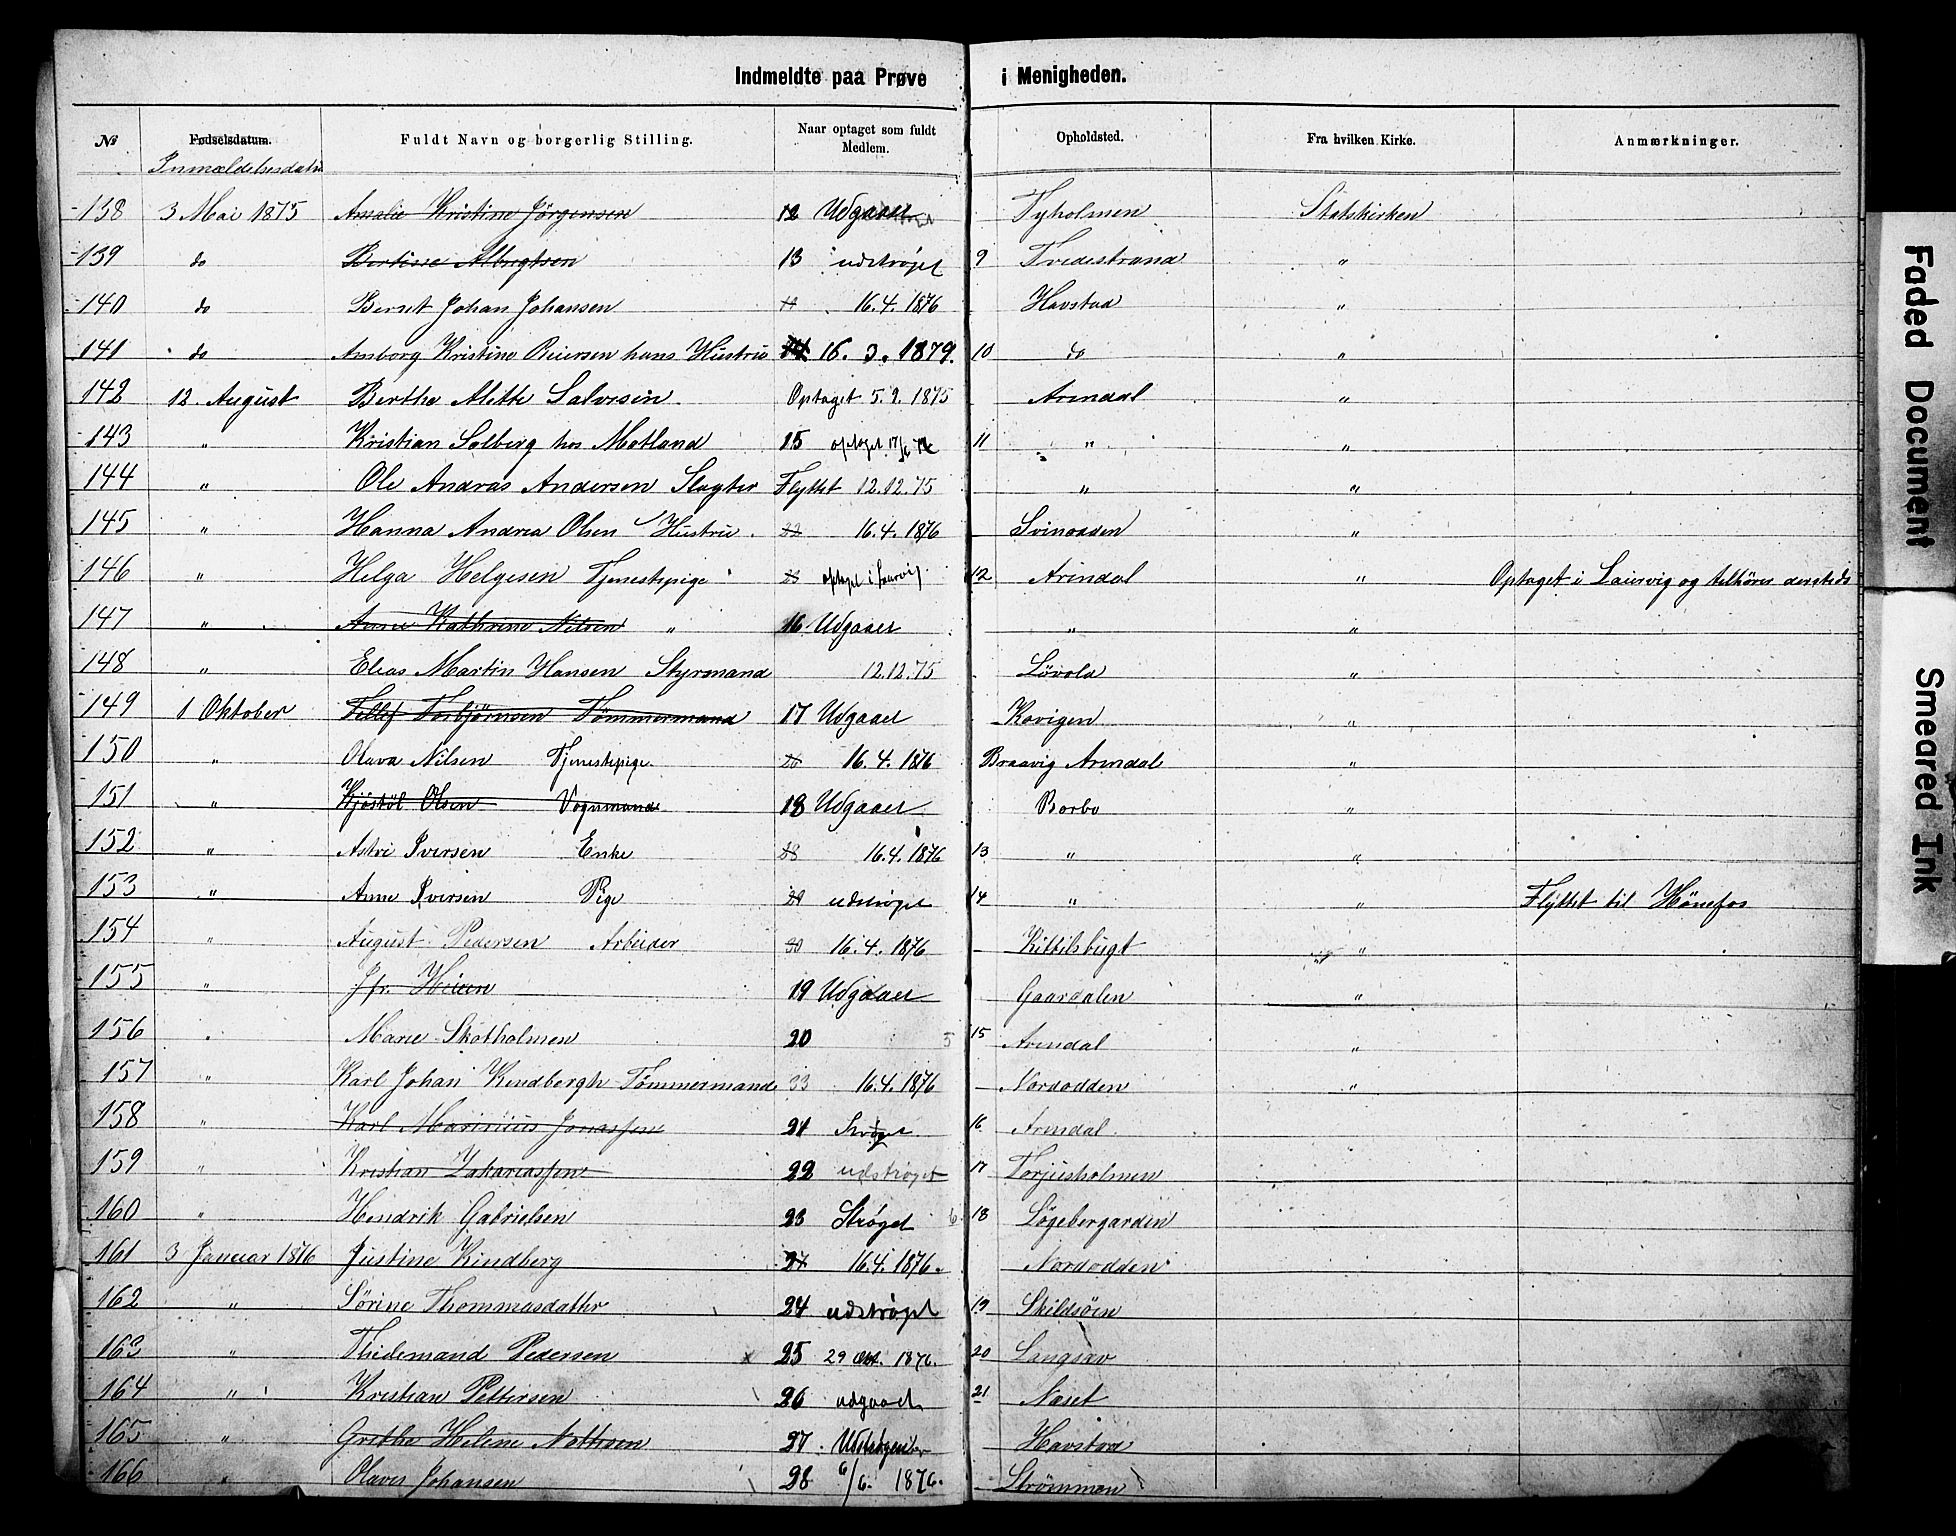 Indmeldte paa Prøve i Menigheden.
№ Fødselsdatum. Fuldt Navn og borgerlig Stilling. Naar optaget som fuldt Medlem. Opholdsted. Fra hvilken Kirke. Anmærkninger.
Inmældelsesdatu
138 3 Mai 1875 Amalie Kristine Jörgensen 12 Udgaaet Tyholmen Statskirken
139 do Bertine Albrigtsen 13 udstrøget 9 Tvedestrand "
140 do Bernt Johan Johansen 16.4.1876 Havstad "
141 do Ansborg Kristine Reiersen hans Hustru 16.3.1879. 10 do "
142 12 August Berthe Alette Salvesen Optaget 5.9.1875 Arendal "
143 " Kristian Solberg hos Motland 15 optaget 11 " "
144 " Ole Andras Andersen Slagter Flyttet 12.12.75 " "
145 " Hanna Andrea Olsen Hustru 16.4.1876 Svinodden "
146 " Helga Helgesen Tjenestepige optaget i Laurvig. 12 Arendal " Optaget i Laurvig og tilhører dersteds
147 " Anne Kathrine Nilsen " 16 Udgaaet " "
148 " Elias Martin Hansen Styrmand 12.12.75 Løvold "
149 1 Oktober Tellef Torbjørnsen Tømmermand 17 Udgaaet Kovigen "
150 " Olava Nilsen Tjenestepige. 16.4.1876 Braavig Arendal "
151 " Kjöstöl Olsen Vognmand 18 Udgaaet Barbo "
152 " Astri Iversen Enke 16.4.1876 13 " "
153 " Anne Iversen Pige udstrøget 14 " " Flyttet til Hönefos
154 " August Pedersen Arbeider 30 16.4.1876 Kittilsbugt "
155 " Jfr. 19 Udgaaet Gaardalen "
156 " Marie Skotholmen 20 5 15 Arendal "
157 " Karl Johan Kindbergh Tömmermand 33 16.4.1876 Nordodden "
158 " Karl Marinius Jonassen 21 Strøget 16 Arendal
159 " Kristian Zakariassen 22 udstrøget 17 Torjusholmen
160 " Hendrik Gabrielsen 23 Strøget 6 18 Løgebergarden
161 3 Januar 1876 Justine Kindberg 16.4.1876. Nordodden
162 " Sörine Thommasdatter 24 udstrøget 19 Skildsöen
163 " Thidemand Pedersen x 25 29 Okt. 1876. 20 Langsæv
164 " Kristian Pettersen 26 udgaaet 21 Naset
165 " Grethe Helene Nathsen 27 Havstad
166 " Olaves Johansen 28 6/6. 1876. Strömmen
Faded Document
Smeared Ink